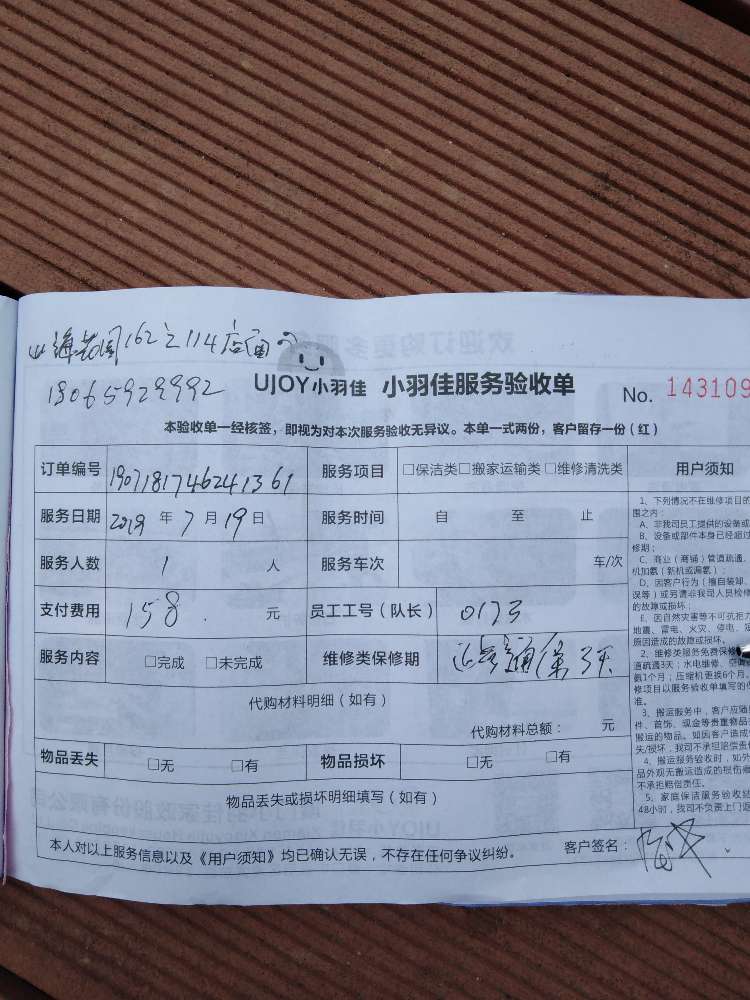 海花园162之114店面
18065929992
UJOY小羽佳 小羽佳服务验收单 No. 143109
本验收单一经核签,即视为对本次服务验收无异议。本单一式两份,客户留存一份(红)
订单编号 1907181746241361 服务项目 □保洁类□搬家运输类 □维修清洗类 用户须知
服务日期 2019 年 7 月 19 日 服务时间 自 至 止
服务人数 1 人 服务车次 车/次
支付费用 158. 元 员工工号(队长) 0173
服务内容 □完成 □未完成 维修类保修期 3天
代购材料明细(如有)
代购材料总额: 元
物品丢失 □无 □有 物品损坏 □无 □有
物品丢失或损坏明细填写(如有)
本人对以上服务信息以及《用户须知》均已确认无误,不存在任何争议纠纷。 客户签名:
1、下列情况不在维修项目的
围之内:
A、非我司员工提供的设备或
B、设备或部件本身已经超过
修期;
C、商业(商铺)管道疏通、
机加氨(新机或漏氨);
D、因客户行为(擅自装卸、
误等)或另请非我司人员检修
的故障或损坏;
E、因自然灾害等不可抗拒力
地震、雷电、火灾、停电、
原因造成的故障或损坏。
2、维修类服务免费保
道疏通3天;水电维修、空调
氨1个月;压缩机更换6个月。
修项目以服务验收单填写的
准。
3、搬运服务中,客户应随
件、首饰、现金等贵重物品
搬运的物品。如因客户造成
失/损坏,我司不承担赔偿责
4、搬运服务验收时,如外
品外观无搬运造成的损伤
不承担赔偿责任。
5、家庭保洁服务验收
48小时,我司不负责上门返